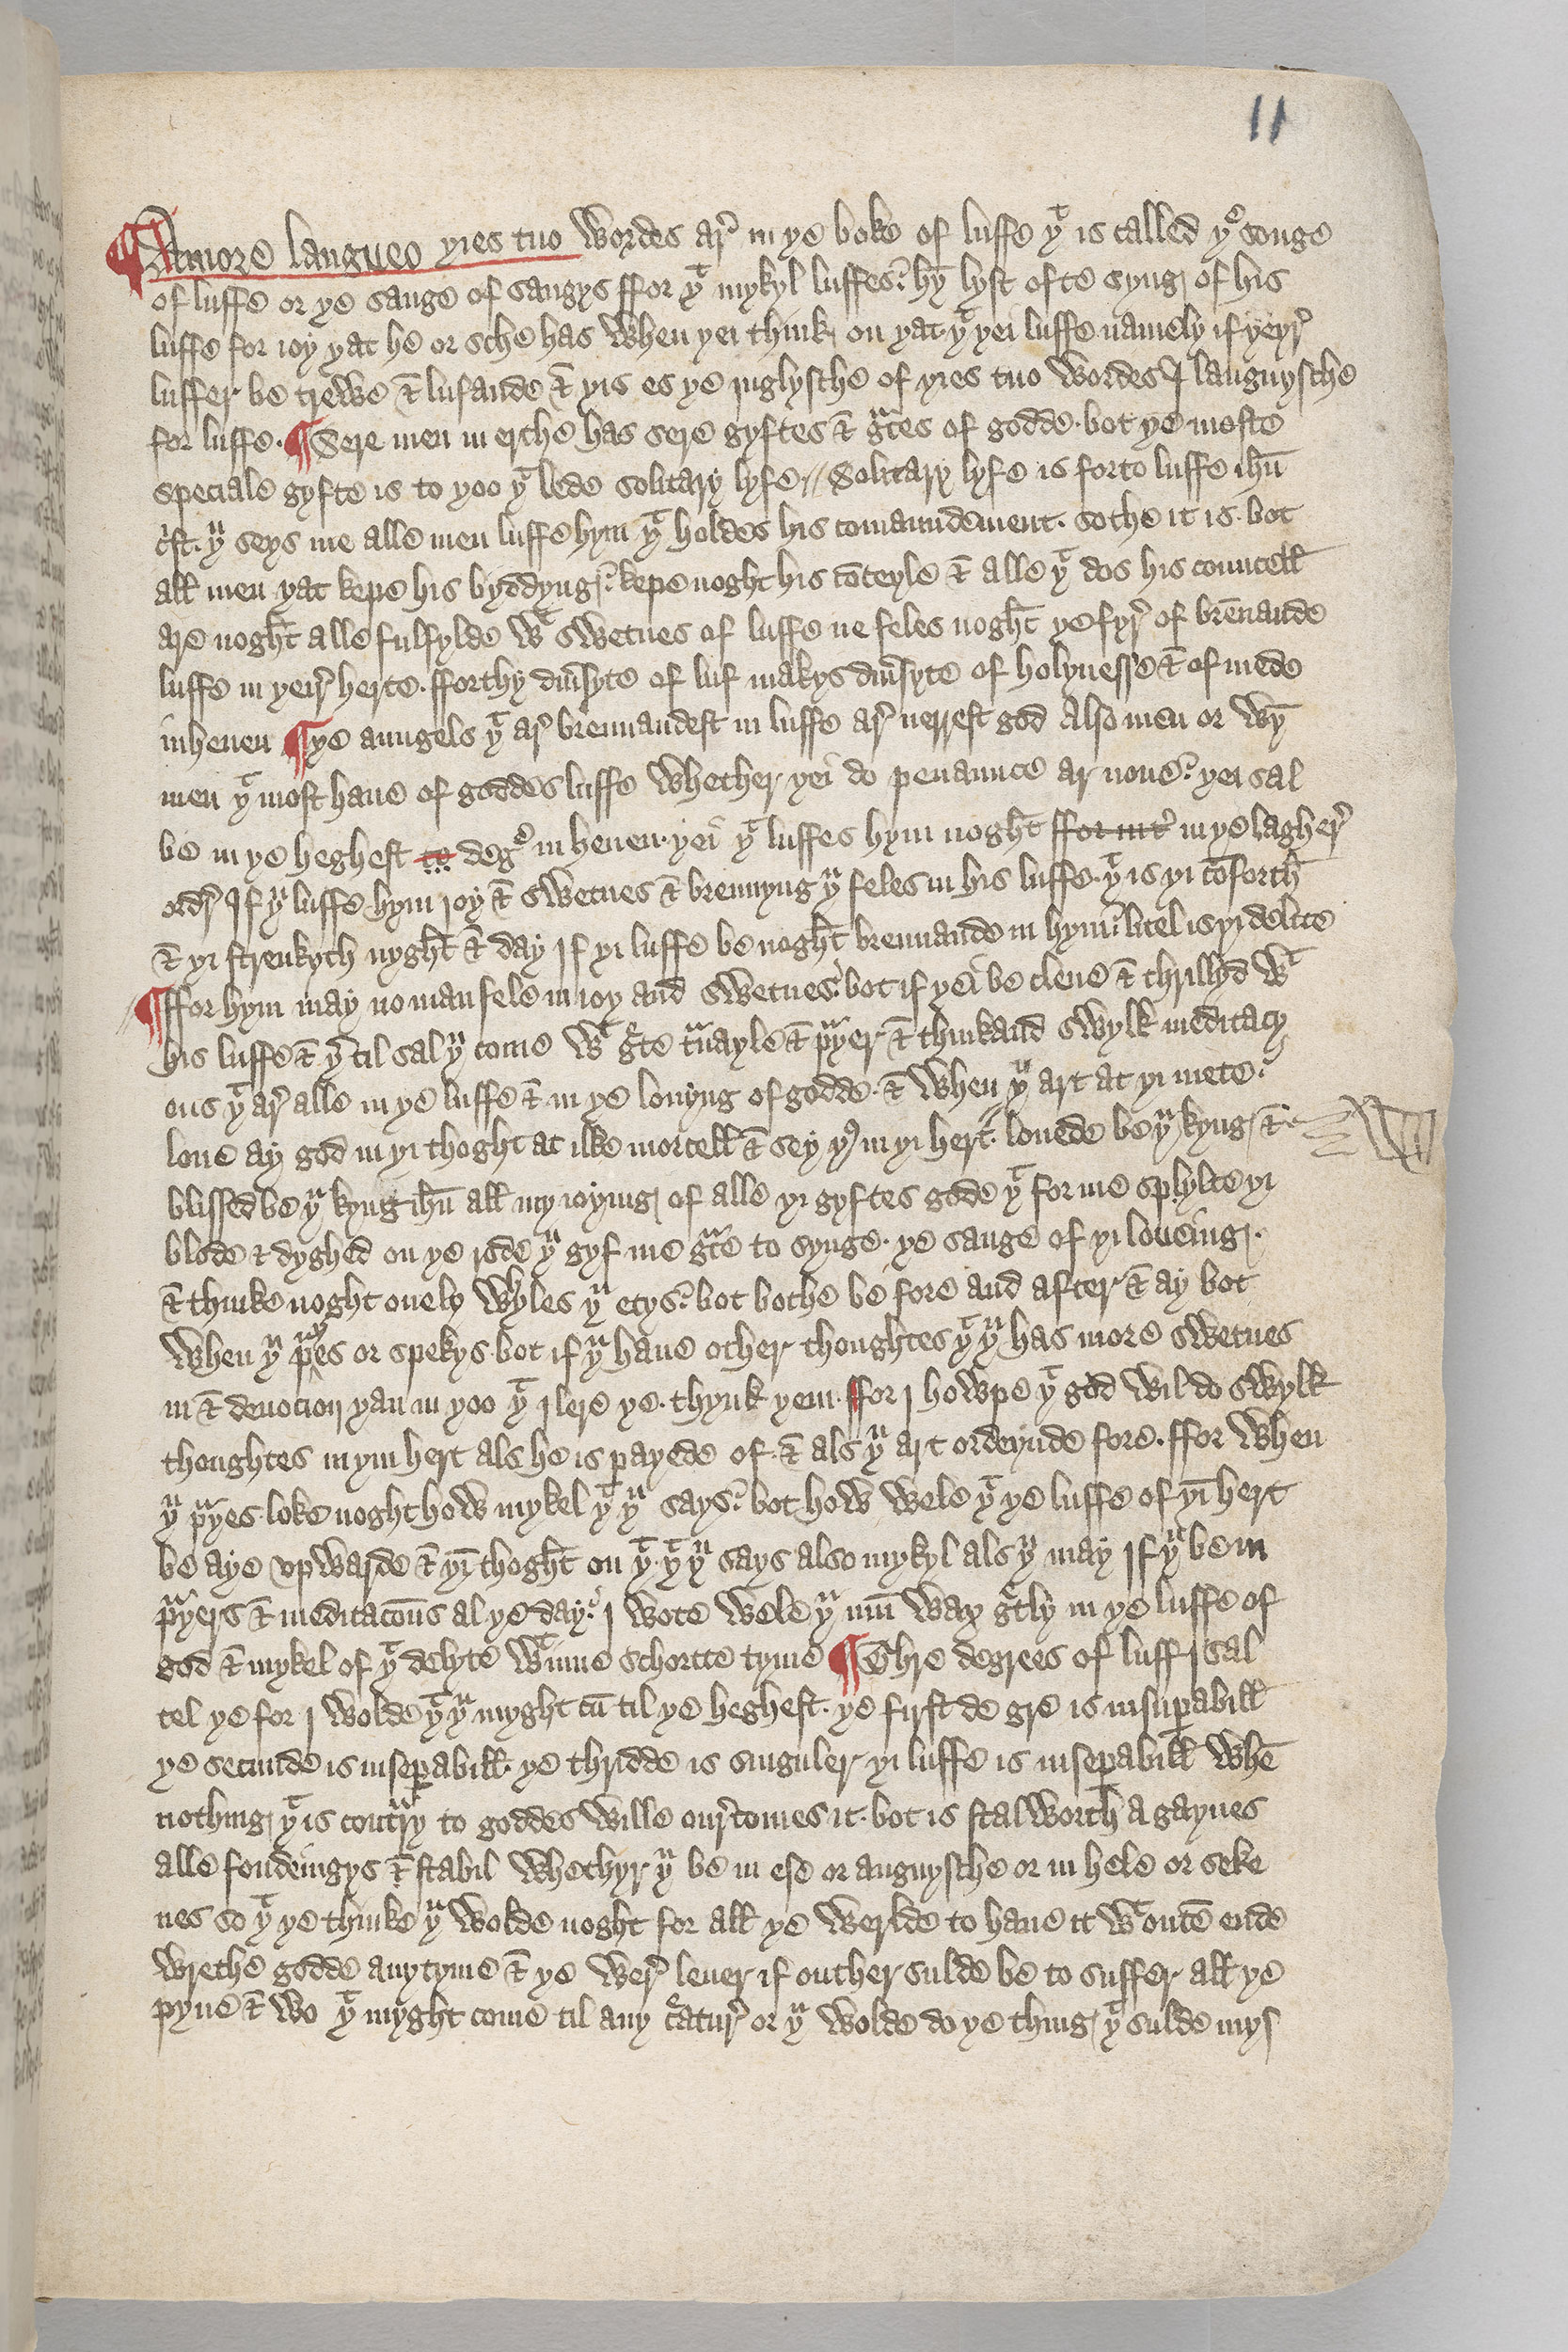 11
¶ Amore langueo yies tuo wordes ar̉ in ye boke of luffe yͭ is called yᵉ songe
of luffe or ye sange of sangys ffor yͭ mykyl luffes hȳ lyst ofte syng of his
luffe for ioy yat he or sche has when yei think on yat yͭ yei luffe namely if yeyr̉
luffer be trewe & lufande & yis es ye inglysche of yies tuo wordes I languysche
for luffe. ¶ Sere men in erthe has sere gyftes & gᵃces of godde. bot ye moste
speciale gyfte is to yoo yͭ lede solitary lyfe // Solitary lyfe is forto luffe ihū
cͥst. yᵘ seys me alle men luffe hym yͭ holdes his comaundement. sothe it is. bot
all men yat kepe his byddyng kepe noght his cōceyle & alle yͭ dos his councell
are noght alle fulfylde wͭ swetnes of luffe ne feles noght ye fyr̉ of brēnande
luffe in yeir̉ herte. fforthy diủsyte of luf makys diủsyte of holynesse & of mede
in heuen ¶ ye aungels yͭ ar̉ brennandest in luffe ar̉ nerrest god Also men or wȳ
men yͭ most haue of goddes luffe whether yei do penaunce ar none yei sal
be in ye heghest to degᵉ in heuen. yei yͭ luffes hym noght ffor int̉ in ye lagher̉
ordr̉ If yᵘ luffe hym ioy & swetnes & brennyng yᵘ feles in his luffe. yͭ is yi cōforth
& yi strenkyth nyght & day If yi luffe be noght brennande in hym litel is yi delite
¶ ffor hym may no man fele in ioy and swetnes bot if yei be clene & thrillyd wͭ
his luffe & yͬ til sal yᵘ come wͭ gͬte tᵃuayle & pᵃyer & thinkand swylk meditacy
ons yͭ ar̉ alle in ye luffe & in ye louyng of godde. & when yᵘ art at yi mete
loue ay god in yi thoght at ilke morcell & sey yꝰ in yi hert. louede be yᵘ kyng &
blissed be yᵘ kyng ihū all my ioying of alle yi gyftes gode yͭ for me spylte yi
blode & dyghed on ye rode yᵘ gyf me gᵃce to synge. ye sange of yi loueing.
& thinke noght onely whyles yᵘ etys bot bothe be fore and after & ay bot
when yᵘ pᵃyes or spekys. bot if yᵘ haue other thoughtes yͭ yᵘ has more swetnes
in & deuocion yan in yoo yͭ I lere ye. thynk yem. ffor I howpe yͭ god wil do swylk
thoughtes in yin hert als he is payede of. & als yᵘ art ordeynde fore. ffor when
yᵘ pᵃyes. loke noght how mykel yͭ yᵘ says bot how wele yͭ ye luffe of yī hert
be aye vpwarde & yī thoght on yͭ. yͭ yᵘ says also mykyl als yᵘ may If yᵘ be in
pᵃyers & meditacōns al ye day I wote wele yᵘ mū wax gͬtly in ye luffe of
god & mykel of yͭ delyte wͭinne schortte tyme ¶ Thre degrees of luff I sal
tel ye for I wolde yͭ yᵘ myght cū til ye heghest. ye first de gre is insuꝑabill
ye secunde is inseꝑabill. ye thridde is singuler yi luffe is inseꝑabill whē
nothing yͭ is contᵃry to goddes wille ouercomes it. bot is stalworth a gaynes
alle fondeingys & stabil whethyr yᵘ be in ese or anguysche or in hele or seke
nes so yͭ ye thinke yᵘ wolde noght for all ye werlde to haue it wͭ outē ende
wrethe godde any tyme & ye wer̉ leuer if outher sulde be to suffer all ye
pyne & wo yͭ myght come til any cͤatur̉ or yᵘ wolde do ye thing yͭ sulde mys